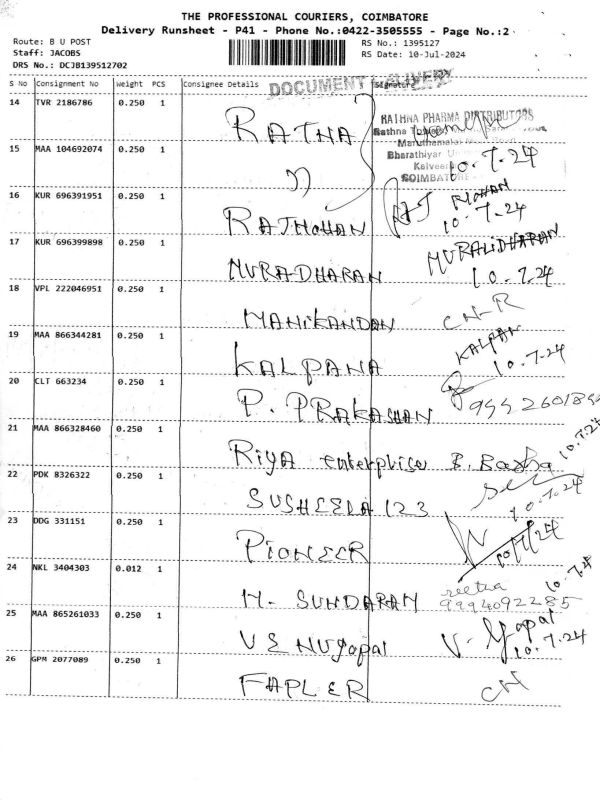 THE PROFESSIONAL COURIERS, COIMBATORE
Delivery Runsheet - P41 - Phone No.:0422-3505555 - Page No.:2
Route: B U POST
Staff: JACOBS
DRS No.: DCJB139512702
RS No.: 1395127
RS Date: 10-Jul-2024
S No Consignment No Weight PCS Consignee Details Signature
DOCUMENT
14 TVR 2186786 0.250 1 RATHA
RATHNA PHARMA DISTRIBUTORS
Rathna
Bharathiyar
COIMBATORE
15 MAA 104692074 0.250 1 10.7.24
16 KUR 696391951 0.250 1 RAJMOHAN
10.7.24
17 KUR 696399898 0.250 1 MURADHARAN MURALIDHARAN
10.7.24
18 VPL 222046951 0.250 1 MANIKANDAN CN-R
19 MAA 866344281 0.250 1 KALPANA KALPAN
10.7.24
20 CLT 663234 0.250 1 P. PRAKASHAN
21 MAA 866328460 0.250 1 Riya enterprise B. Basha
10.7.24
22 PDK 8326322 0.250 1 SUSHEELA 123
10.7.24
23 DDG 331151 0.250 1 PIONEER
10/7/24
24 NKL 3404303 0.012 1 M. SUNDARAM reetha
9994092285
10.7.24
25 MAA 865261033 0.250 1 VENUgopal V. Gopal
10.7.24
26 GPM 2077089 0.250 1 FAPLER CN